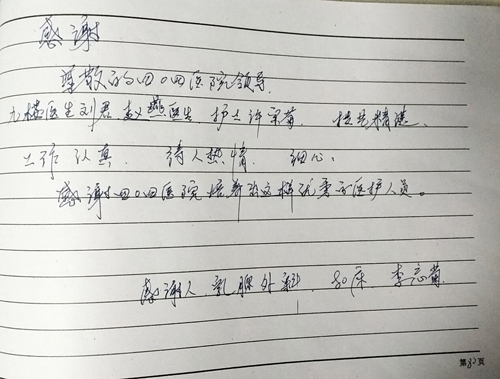 感谢
尊敬的四〇四医院领导
九楼医生刘君 赵燕医生、护士许荣菊、技术精进、
工作认真、待人热情、细心、
感谢四〇四医院培养的这样优秀的医护人员。
感谢人、乳腺外科、80床 李志菊
第82页